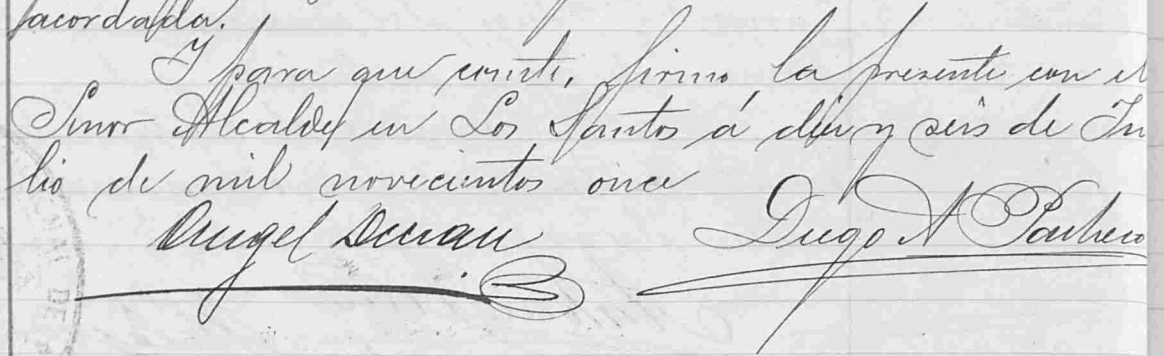 acordada.
Y para que conste, firmo la presente con el
Señor Alcalde en Los Santos á diez y seis de Ju
lio de mil novecientos once
Angel Duran
Diego A Pacheco